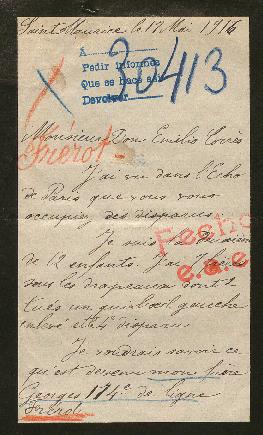 Saint Maurice le 17 Mai 1916
À
Pedir informes
Que se hace así
Devolver
20413
Frérot
Monsieur Don Emilio Torrès
J'ai vu dans l'Echo
de Paris que vous vous
occupiez des disparus.
Je suis
de 12 enfants. J'ai 7 frères
sous les drapeaux dont 1
tués un qui l'œil gauche
enlevé et le 4e disparu.
Fecho
e.a.e.
Je voudrais savoir ce
qu'est devenu mon frère
Georges 174e de ligne
Frérot